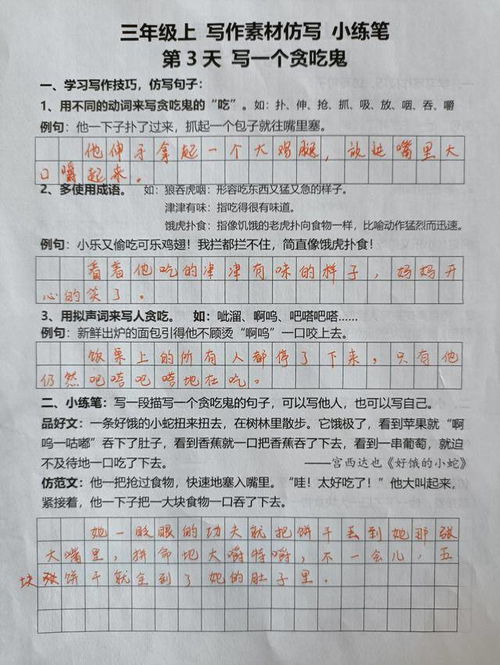 三年级上 写作素材仿写 小练笔
第 3 天 写一个贪吃鬼
一、学习写作技巧，仿写句子：
1、用不同的动词来写贪吃鬼的“吃”。如：扑、伸、抢、抓、吸、放、咽、吞、嚼
例句：他一下子扑了过来，抓起一个包子就往嘴里塞。
他伸手拿起一个大鸡腿，放进嘴里大
口嚼起来。
2、多使用成语。 如：狼吞虎咽：形容吃东西又猛又急的样子。
津津有味：指吃得很有味道。
饿虎扑食：指像饥饿的老虎扑向食物一样，比喻动作猛烈而迅速。
例句：小乐又偷吃可乐鸡翅！我拦都拦不住，简直像饿虎扑食！
看着他吃的津津有味的样子，妈妈开
心的笑了。
3、用拟声词来写人贪吃。 如：呲溜、啊呜、吧嗒吧嗒……
例句：新鲜出炉的面包引得他不顾烫“啊呜”一口咬上去。
饭桌上的所有人都停了下来，只有他
仍然吧嗒吧嗒地在吃。
二、小练笔：写一段描写一个贪吃鬼的句子，可以写他人，也可以写自己。
品好文：一条好饿的小蛇扭来扭去，在树林里散步。它饿极了，看到苹果就“啊
呜—咕嘟”吞下了肚子，看到香蕉就一口把香蕉吞了下去，看到一串葡萄，就迫
不及待地一口吃了下去。 ——宫西达也《好饿的小蛇》
仿范文：他一把抢过食物，快速地塞入嘴里。“哇！太好吃了！”他大叫起来，
紧接着，他一下子把一大块食物一口吞了下去。
她一眨眼的功夫就把饼干丢到她那张
大嘴里，拼命地大嚼特嚼，不一会儿，五
块饼干就全到了她的肚子里。